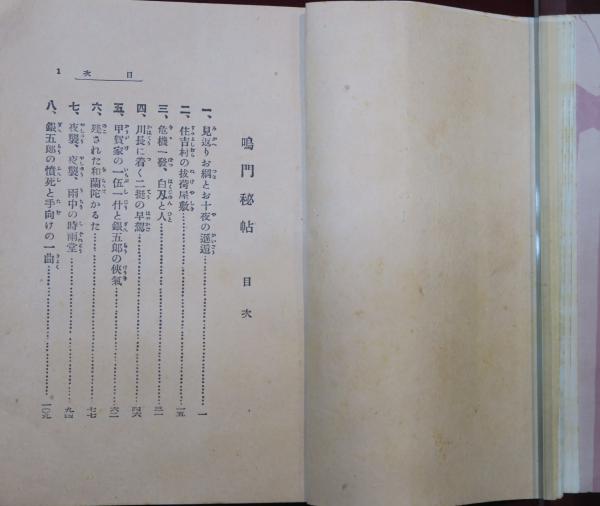 鳴門秘帖 目次
一、見返りお綱とお十夜の邂逅……一
二、住吉村の抜荷屋敷……一五
三、危機一發、白刃と人……三一
四、川長に着く二挺の早駕……四六
五、甲賀家の一伍一什と銀五郎の俠氣……六二
六、殘された和蘭陀かるた……七七
七、夜襲、夜襲、雨中の時雨堂……九四
八、銀五郎の憤死と手向けの一曲……一〇九
目次
1